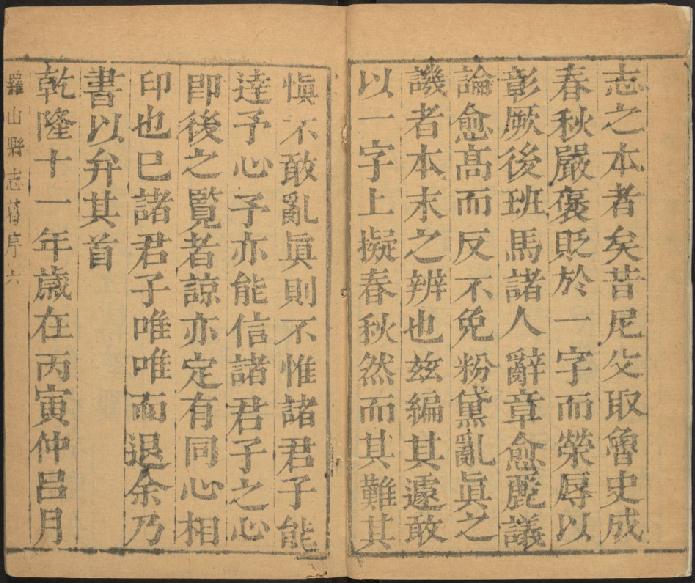 志之本者矣昔尼父取魯史成
春秋嚴褒貶於一字而榮辱以
彰厥後班馬諸人辭章愈麗議
論愈高而反不免粉黛亂眞之
譏者本末之辨也兹編其遽敢
以一字上擬春秋然而其難其
愼不敢亂眞則不惟諸君子能
達予心予亦能信諸君子之心
卽後之覽者諒亦定有同心相
印也已諸君子唯唯而退余乃
書以弁其首
乾隆十一年歲在丙寅仲呂月
羅山縣志舊序六